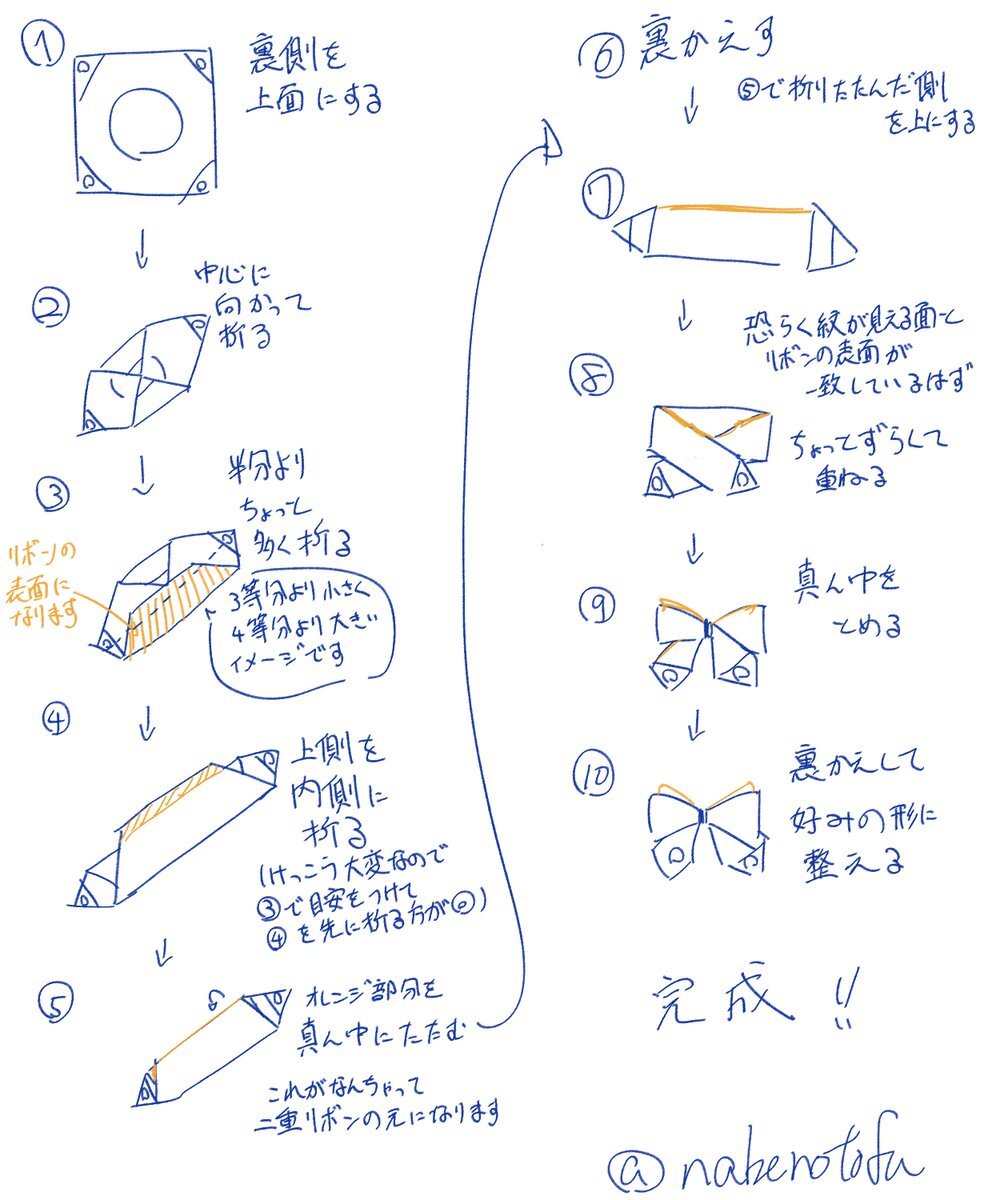 ①
裏側を
上面にする
②
中心に
向かって
折る
③
半分より
ちょっと
多く折る
リボンの
表面に
なります
3等分より小さく
4等分より大きい
イメージです
④
上側を
内側に
折る
(けっこう大変なので
③で目安をつけて
④を先に折る方が◎)
⑤
オレンジ部分を
真ん中にたたむ
これがなんちゃって
二重リボンの元になります
⑥裏かえす
⑤で折りたたんだ側
を上にする
⑦
恐らく紋が見える面と
リボンの表面が
一致しているはず
⑧
ちょっとずらして
重ねる
⑨
真ん中を
とめる
⑩
裏かえして
好みの形に
整える
完成!!
@nabenotofu